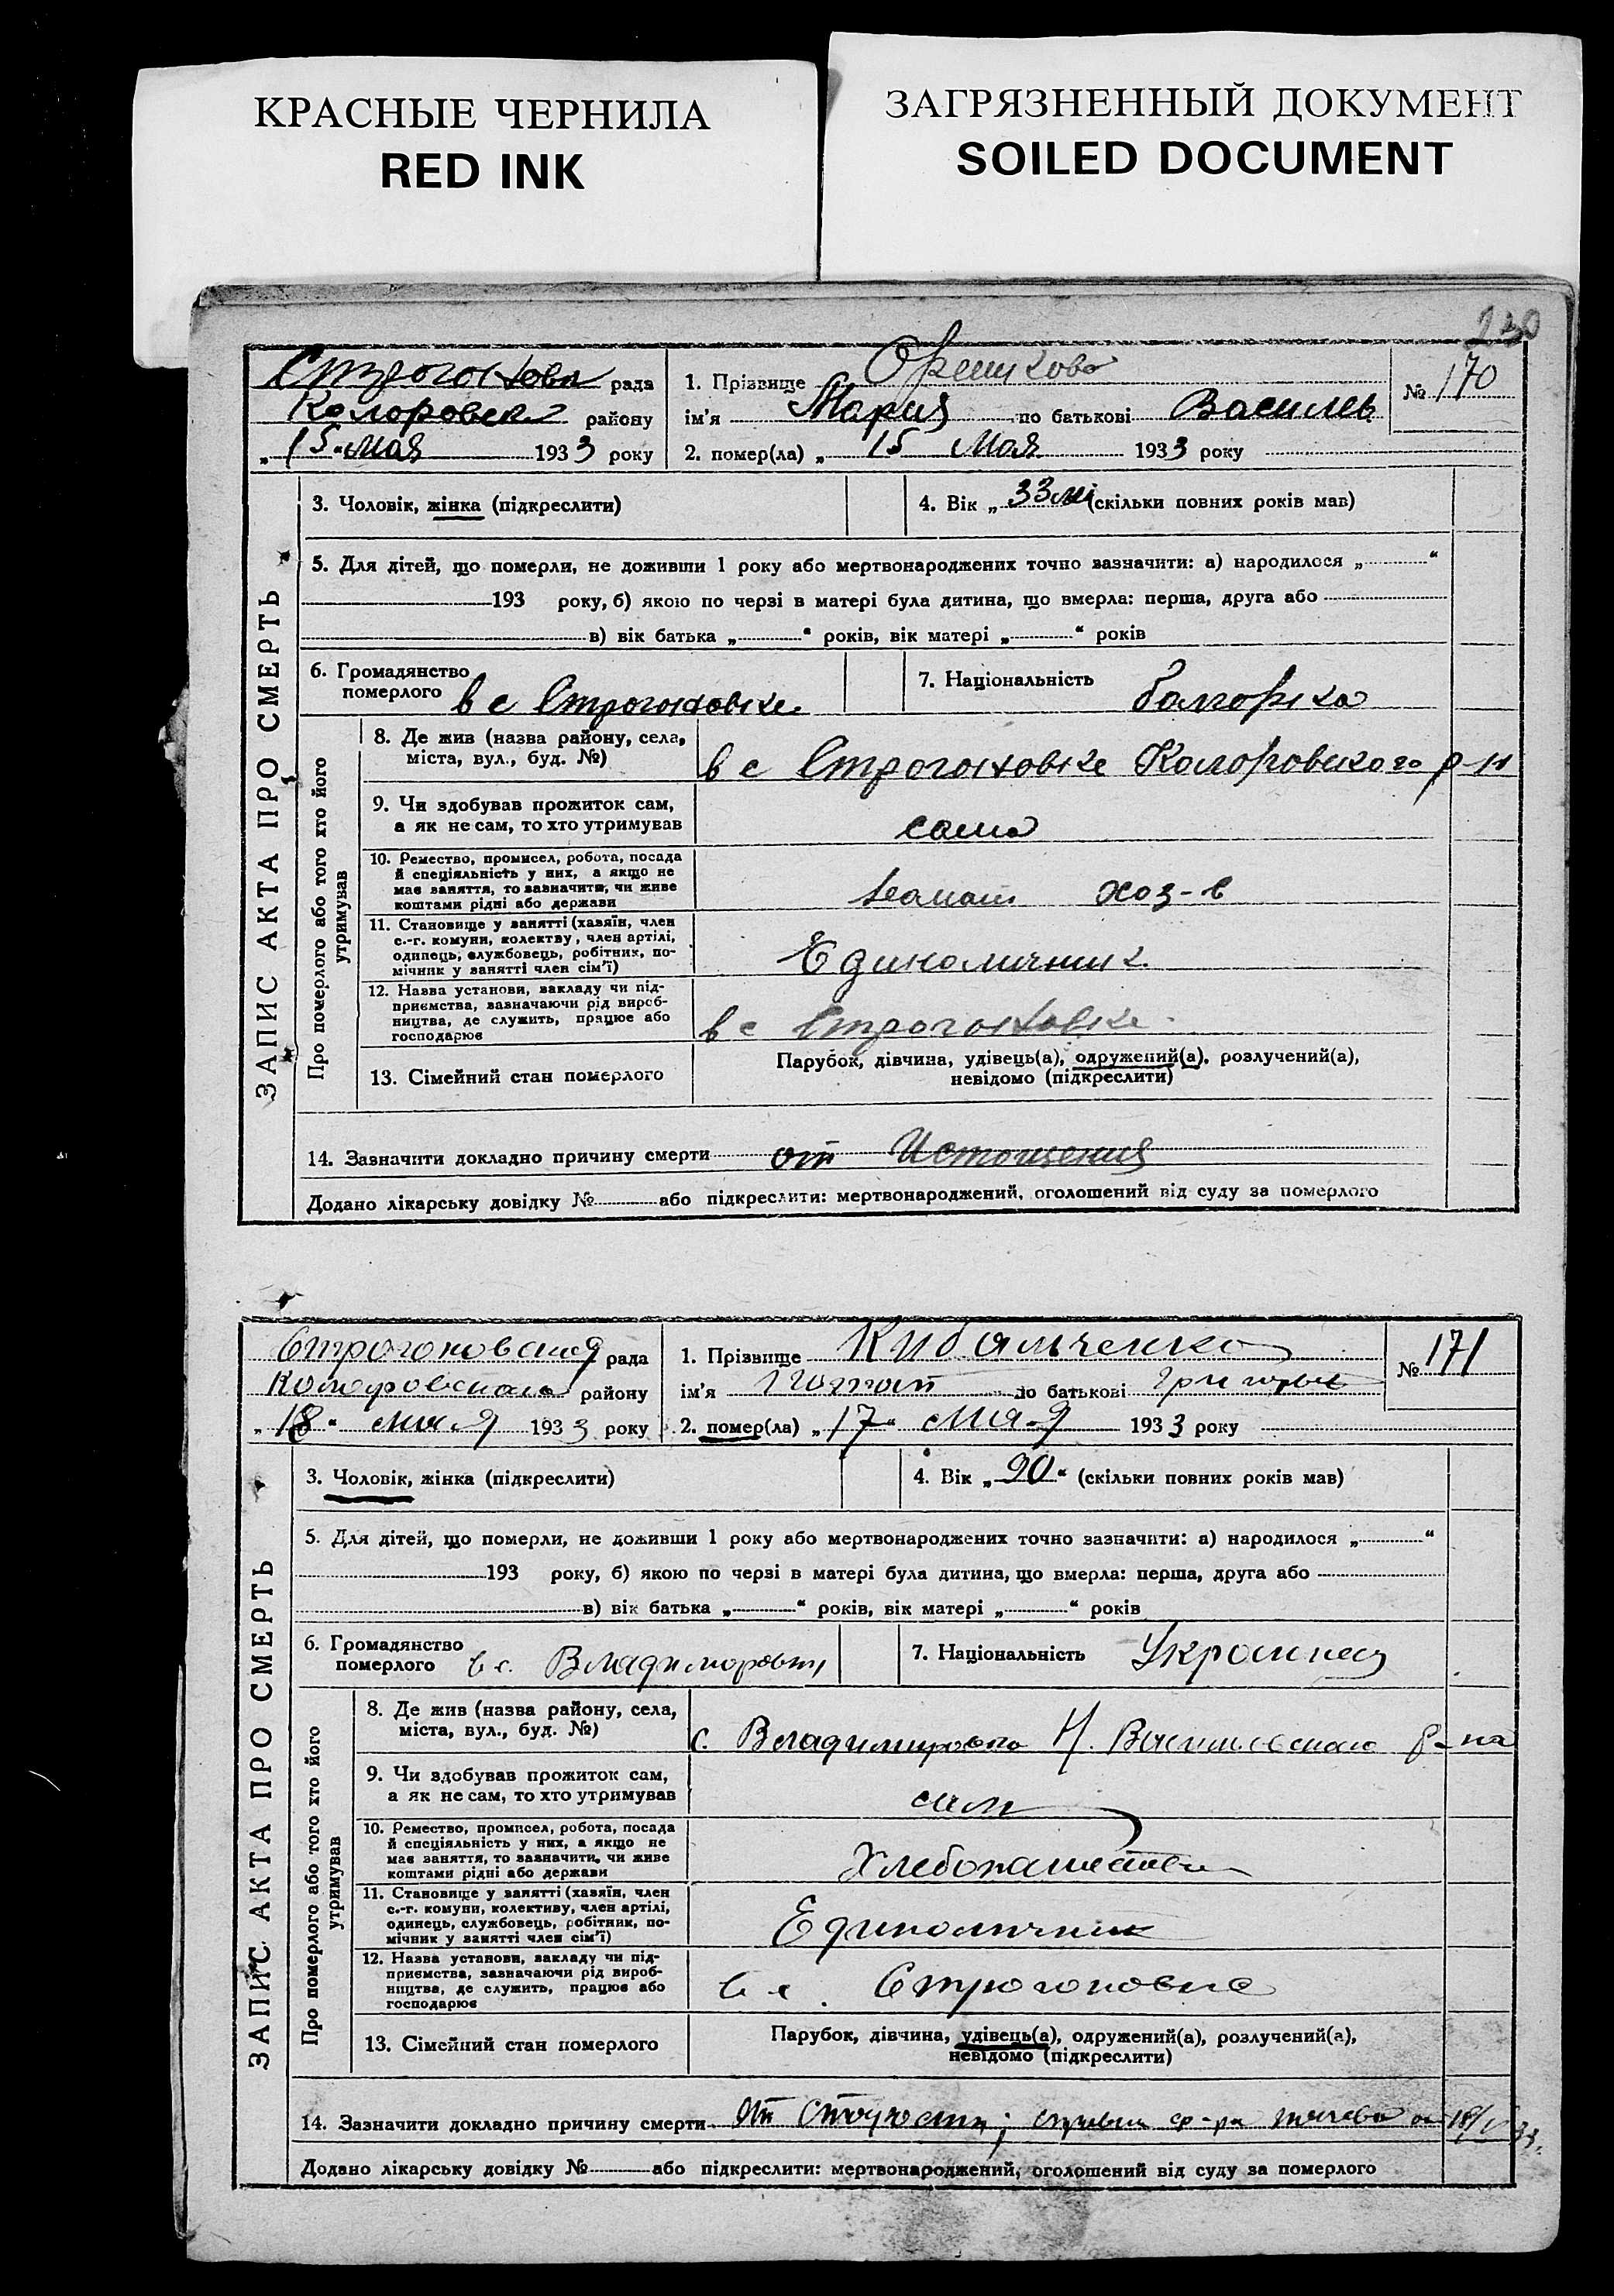 КРАСНЫЕ ЧЕРНИЛА
RED INK
ЗАГРЯЗНЕННЫЙ ДОКУМЕНТ
SOILED DOCUMENT
230
ЗАПИС АКТА ПРО СМЕРТЬ
рада
району
„15“ мая 1933 року
1. Прізвище Орешкова
ім'я Мария по батькові Василев
2. помер(ла) „15 Мая 1933 року
№ 170
3. Чоловік, жінка (підкреслити)
4. Вік „33 (скільки повних років мав)
5. Для дітей, що померли, не доживши 1 року або мертвонароджених точно зазначити: а) народилося „ “
193 року, б) якою по черзі в матері була дитина, що вмерла: перша, друга або
в) вік батька „ “ років, вік матері „ “ років
6. Громадянство
померлого в с Строгоновке
7. Національність болгорка
Про померлого або того хто його
утримував
8. Де жив (назва району, села,
міста, вул., буд. №)
в с Строгоновке Коларовского р-н
9. Чи здобував прожиток сам,
а як не сам, то хто утримував
сама
10. Ремество, промисел, робота, посада
й спеціяльність у них, а якщо не
має заняття, то зазначити, чи живе
коштами рідні або держави
хоз-в
11. Становище у занятті (хазяїн, член
с.-г. комуни, колектву, член артілі,
одинець, службовець, робітник, по-
мічник у занятті член сім'ї)
Единоличник
12. Назва установи, закладу чи під-
приємства, зазначаючи рід вироб-
ництва, де служить, працює або
господарює
в с Строгоновке
13. Сімейний стан померлого
Парубок, дівчина, удівець(а), одружений(а), розлучений(а),
невідомо (підкреслити)
14. Зазначити докладно причину смерти от Истощения
Додано лікарську довідку № або підкреслити: мертвонароджений, оголошений від суду за померлого
ЗАПИС АКТА ПРО СМЕРТЬ
Строгоновская рада
району
„18“ мая 1933 року
1. Прізвище Кибальченко
ім'я Потап по батькові
2. помер(ла) „17“ мая 1933 року
№ 171
3. Чоловік, жінка (підкреслити)
4. Вік „90“ (скільки повних років мав)
5. Для дітей, що померли, не доживши 1 року або мертвонароджених точно зазначити: а) народилося „ “
193 року, б) якою по черзі в матері була дитина, що вмерла: перша, друга або
в) вік батька „ “ років, вік матері „ “ років
6. Громадянство
померлого в с.
7. Національність Украинец
Про померлого або того хто його
утримував
8. Де жив (назва району, села,
міста, вул., буд. №)
с. Владимировка Н. р-на
9. Чи здобував прожиток сам,
а як не сам, то хто утримував
сам
10. Ремество, промисел, робота, посада
й спеціяльність у них, а якщо не
має заняття, то зазначити, чи живе
коштами рідні або держави
11. Становище у занятті (хазяїн, член
с.-г. комуни, колективу, член артілі,
одинець, службовець, робітник, по-
мічник у занятті член сім'ї)
Единоличник
12. Назва установи, закладу чи під-
приємства, зазначаючи рід вироб-
ництва, де служить, працює або
господарює
в с. Строгоновке
13. Сімейний стан померлого
Парубок, дівчина, удівець(а), одружений(а), розлучений(а),
невідомо (підкреслити)
14. Зазначити докладно причину смерти от Старости; справка
Додано лікарську довідку № або підкреслити: мертвонароджений, оголошений від суду за померлого